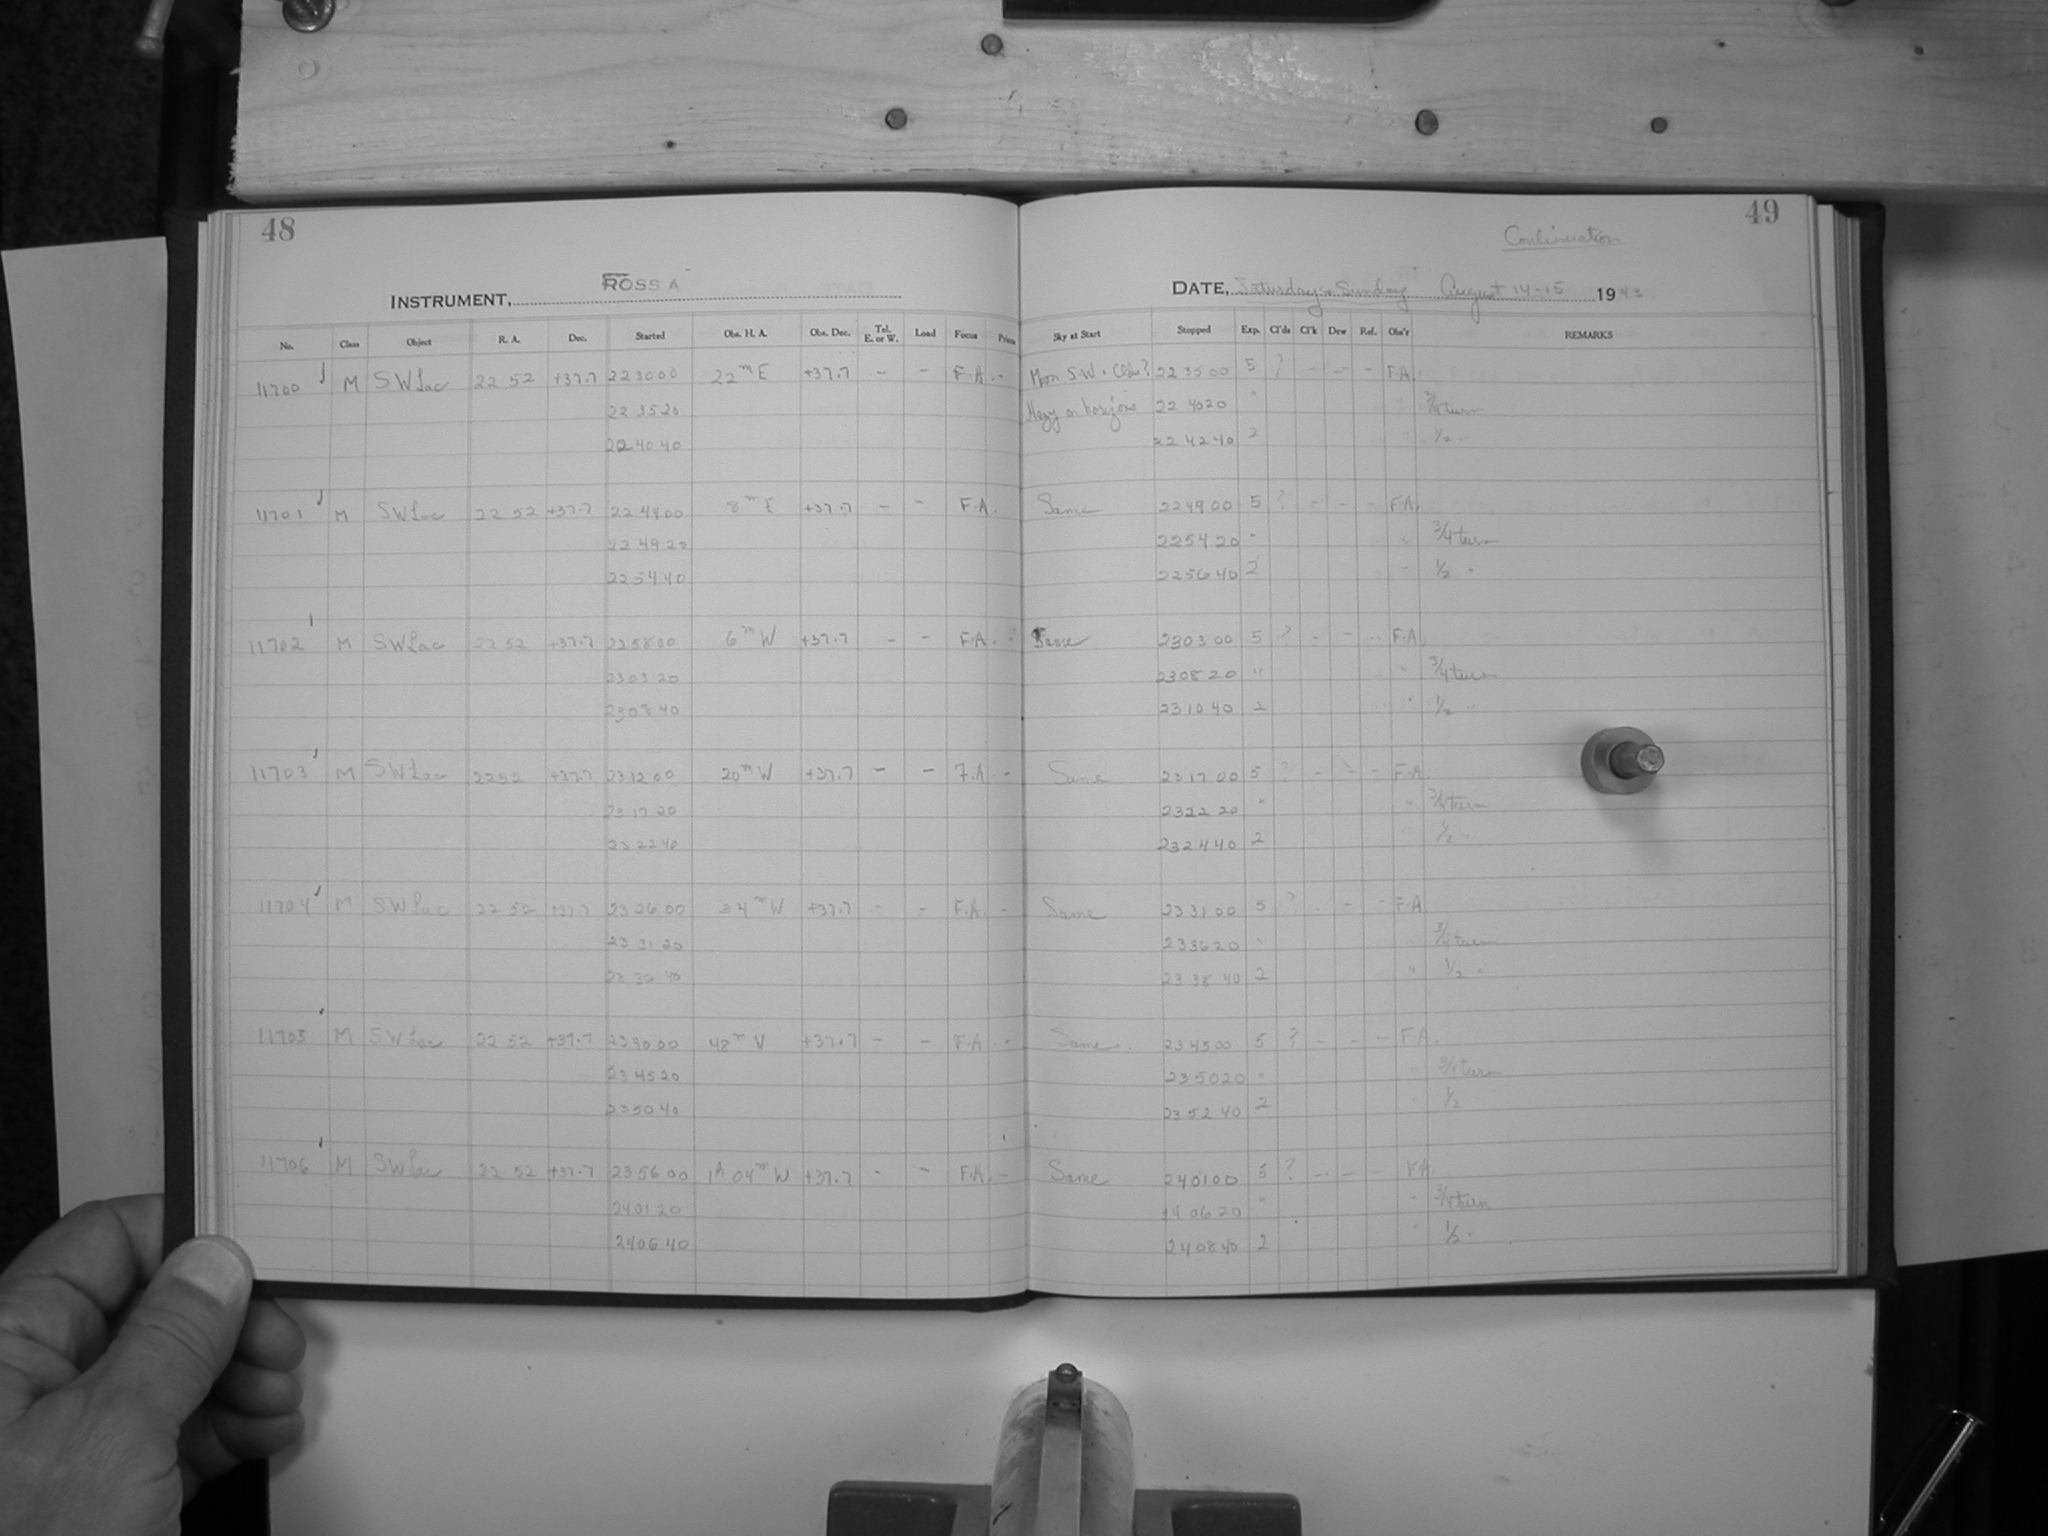 48
ROSS A
INSTRUMENT,
No. Class Object R. A. Dec. Started Obs. H. A. Obs. Dec. Tel. E. or W. Load Focus
11700 M SW Lac 22 52 +37.7 22 30 00 22ᵐ E +37.7 - - F.A. -
22 35 20
22 40 40
11701 M SW Lac 22 52 +37.7 22 44 00 8ᵐ E +37.7 - - F.A.
22 49 20
22 54 40
11702 M SW Lac 22 52 +37.7 22 58 00 6ᵐ W +37.7 - - F.A. -
23 03 20
23 08 40
11703 M SW Lac 22 52 +37.7 23 12 00 20ᵐ W +37.7 - - F.A. -
23 17 20
23 22 40
11704 M SW Lac 22 52 +37.7 23 26 00 34ᵐ W +37.7 - - F.A. -
23 31 20
23 36 40
11705 M SW Lac 22 52 +37.7 23 40 00 48ᵐ W +37.7 - - F.A. -
23 45 20
23 50 40
11706 M SW Lac 22 52 +37.7 23 56 00 1ʰ 04ᵐ W +37.7 - - F.A. -
24 01 20
24 06 40
49
Continuation
DATE, Saturday & Sunday August 14-15 1943
Sky at Start Stopped Exp. Cl'ds Cl'k Dew Ref. Obs'r REMARKS
Moon S.W. Clds? 22 35 00 5 ? - - - F.A.
Hazy on horizons 22 40 20 " " 3/4 turn
22 42 40 2 " 1/2 "
Same 22 49 00 5 ? - - - F.A.
22 54 20 " " 3/4 turn
22 56 40 2 " 1/2 "
Same 23 03 00 5 ? - - - F.A.
23 08 20 " " 3/4 turn
23 10 40 2 " 1/2 "
Same 23 17 00 5 ? - - - F.A.
23 22 20 " " 3/4 turn
23 24 40 2 1/2 "
Same 23 31 00 5 ? - - - F.A.
23 36 20 " " 3/4 turn
23 38 40 2 " 1/2 "
Same 23 45 00 5 ? - - - F.A.
23 50 20 " " 3/4 turn
23 52 40 2 " 1/2
Same 24 01 00 5 ? - - - F.A.
24 06 20 " " 3/4 turn
24 08 40 2 " 1/2 "